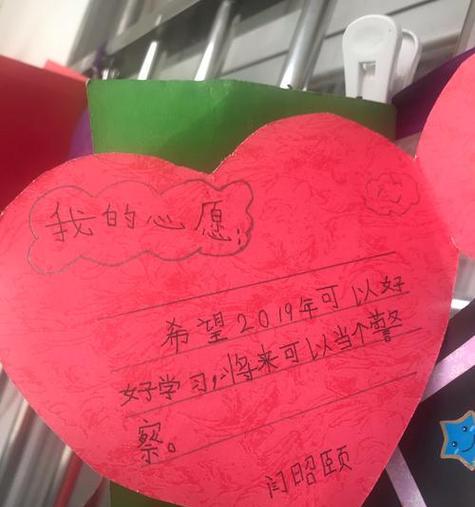 我的心愿:
希望2019年可以好
好学习,将来可以当个警
察。
闫昭颐